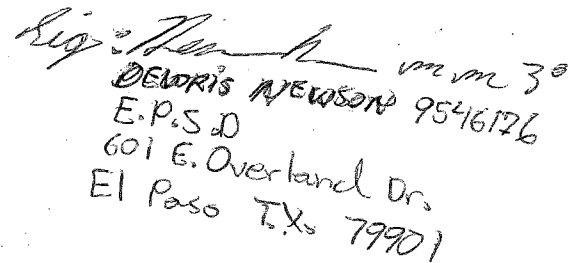 Sig:
DELORIS NEWSON 9546176
E.P.S.D
601 E. Overland Dr.
El Paso T.X. 79901